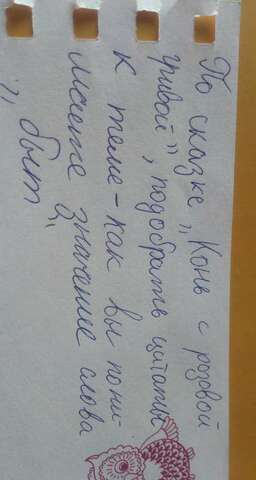 По сказке „Конь с розовой
гривой", подобрать цитаты
к теме - как вы пони-
маете значение слова
„быт"